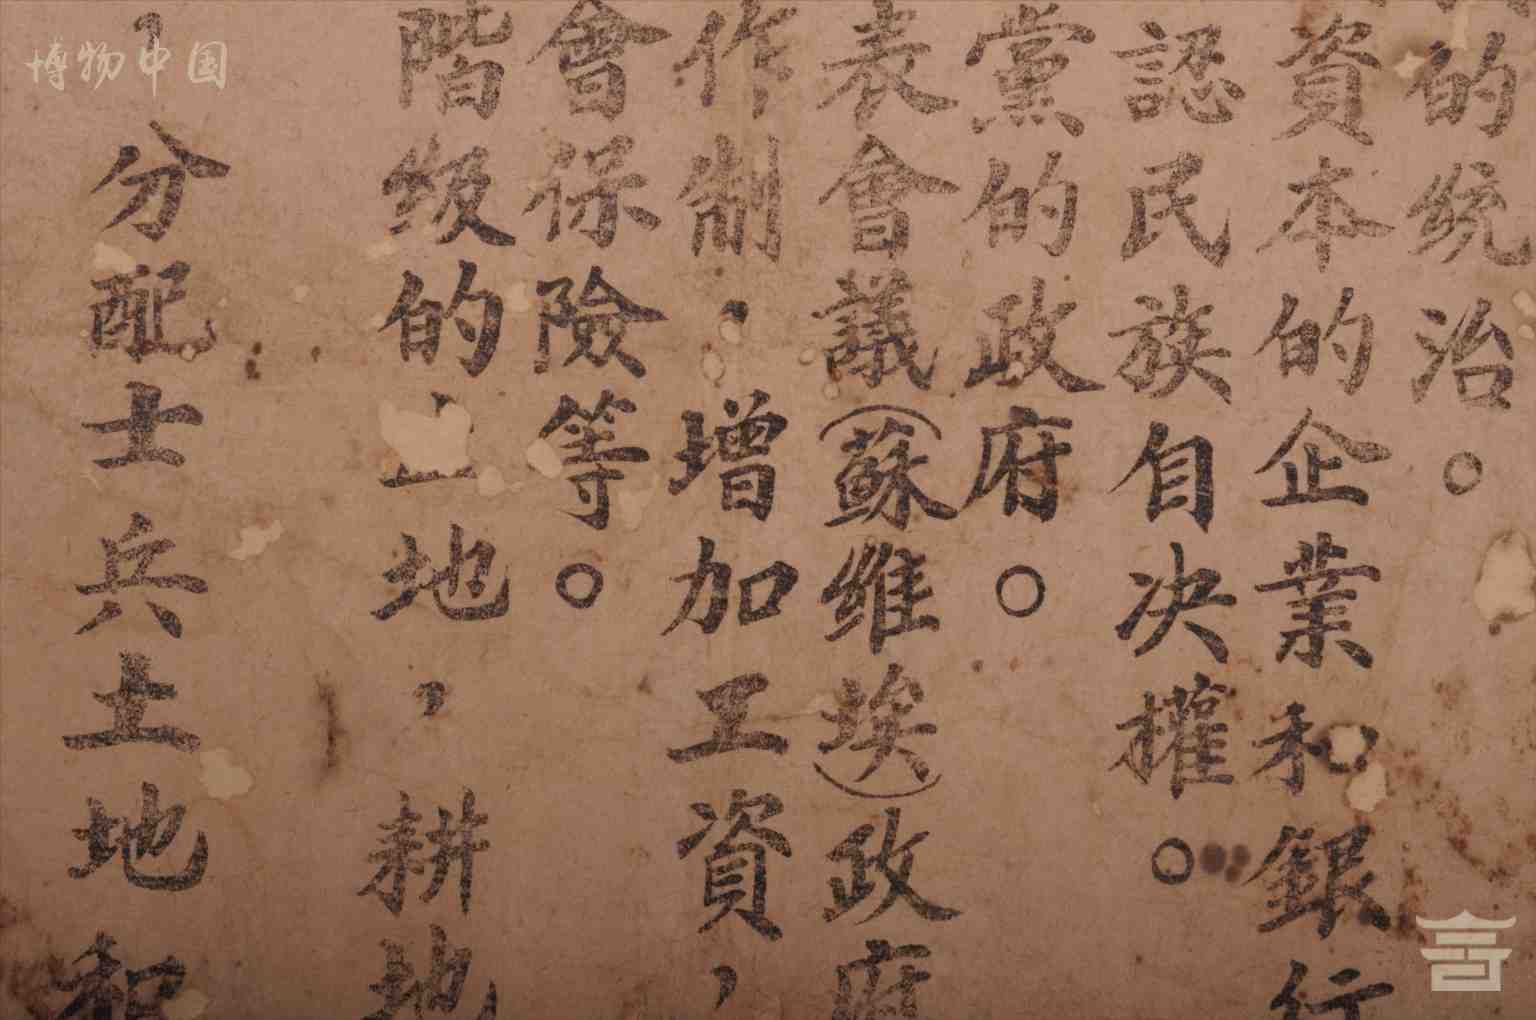 的統治。
資本的企業和銀行
認民族自决權。
黨的政府。
表會議(蘇維埃)政府
作制，增加工資，
會保險等。
階級的土地，耕地
分配士兵土地和
博物中国